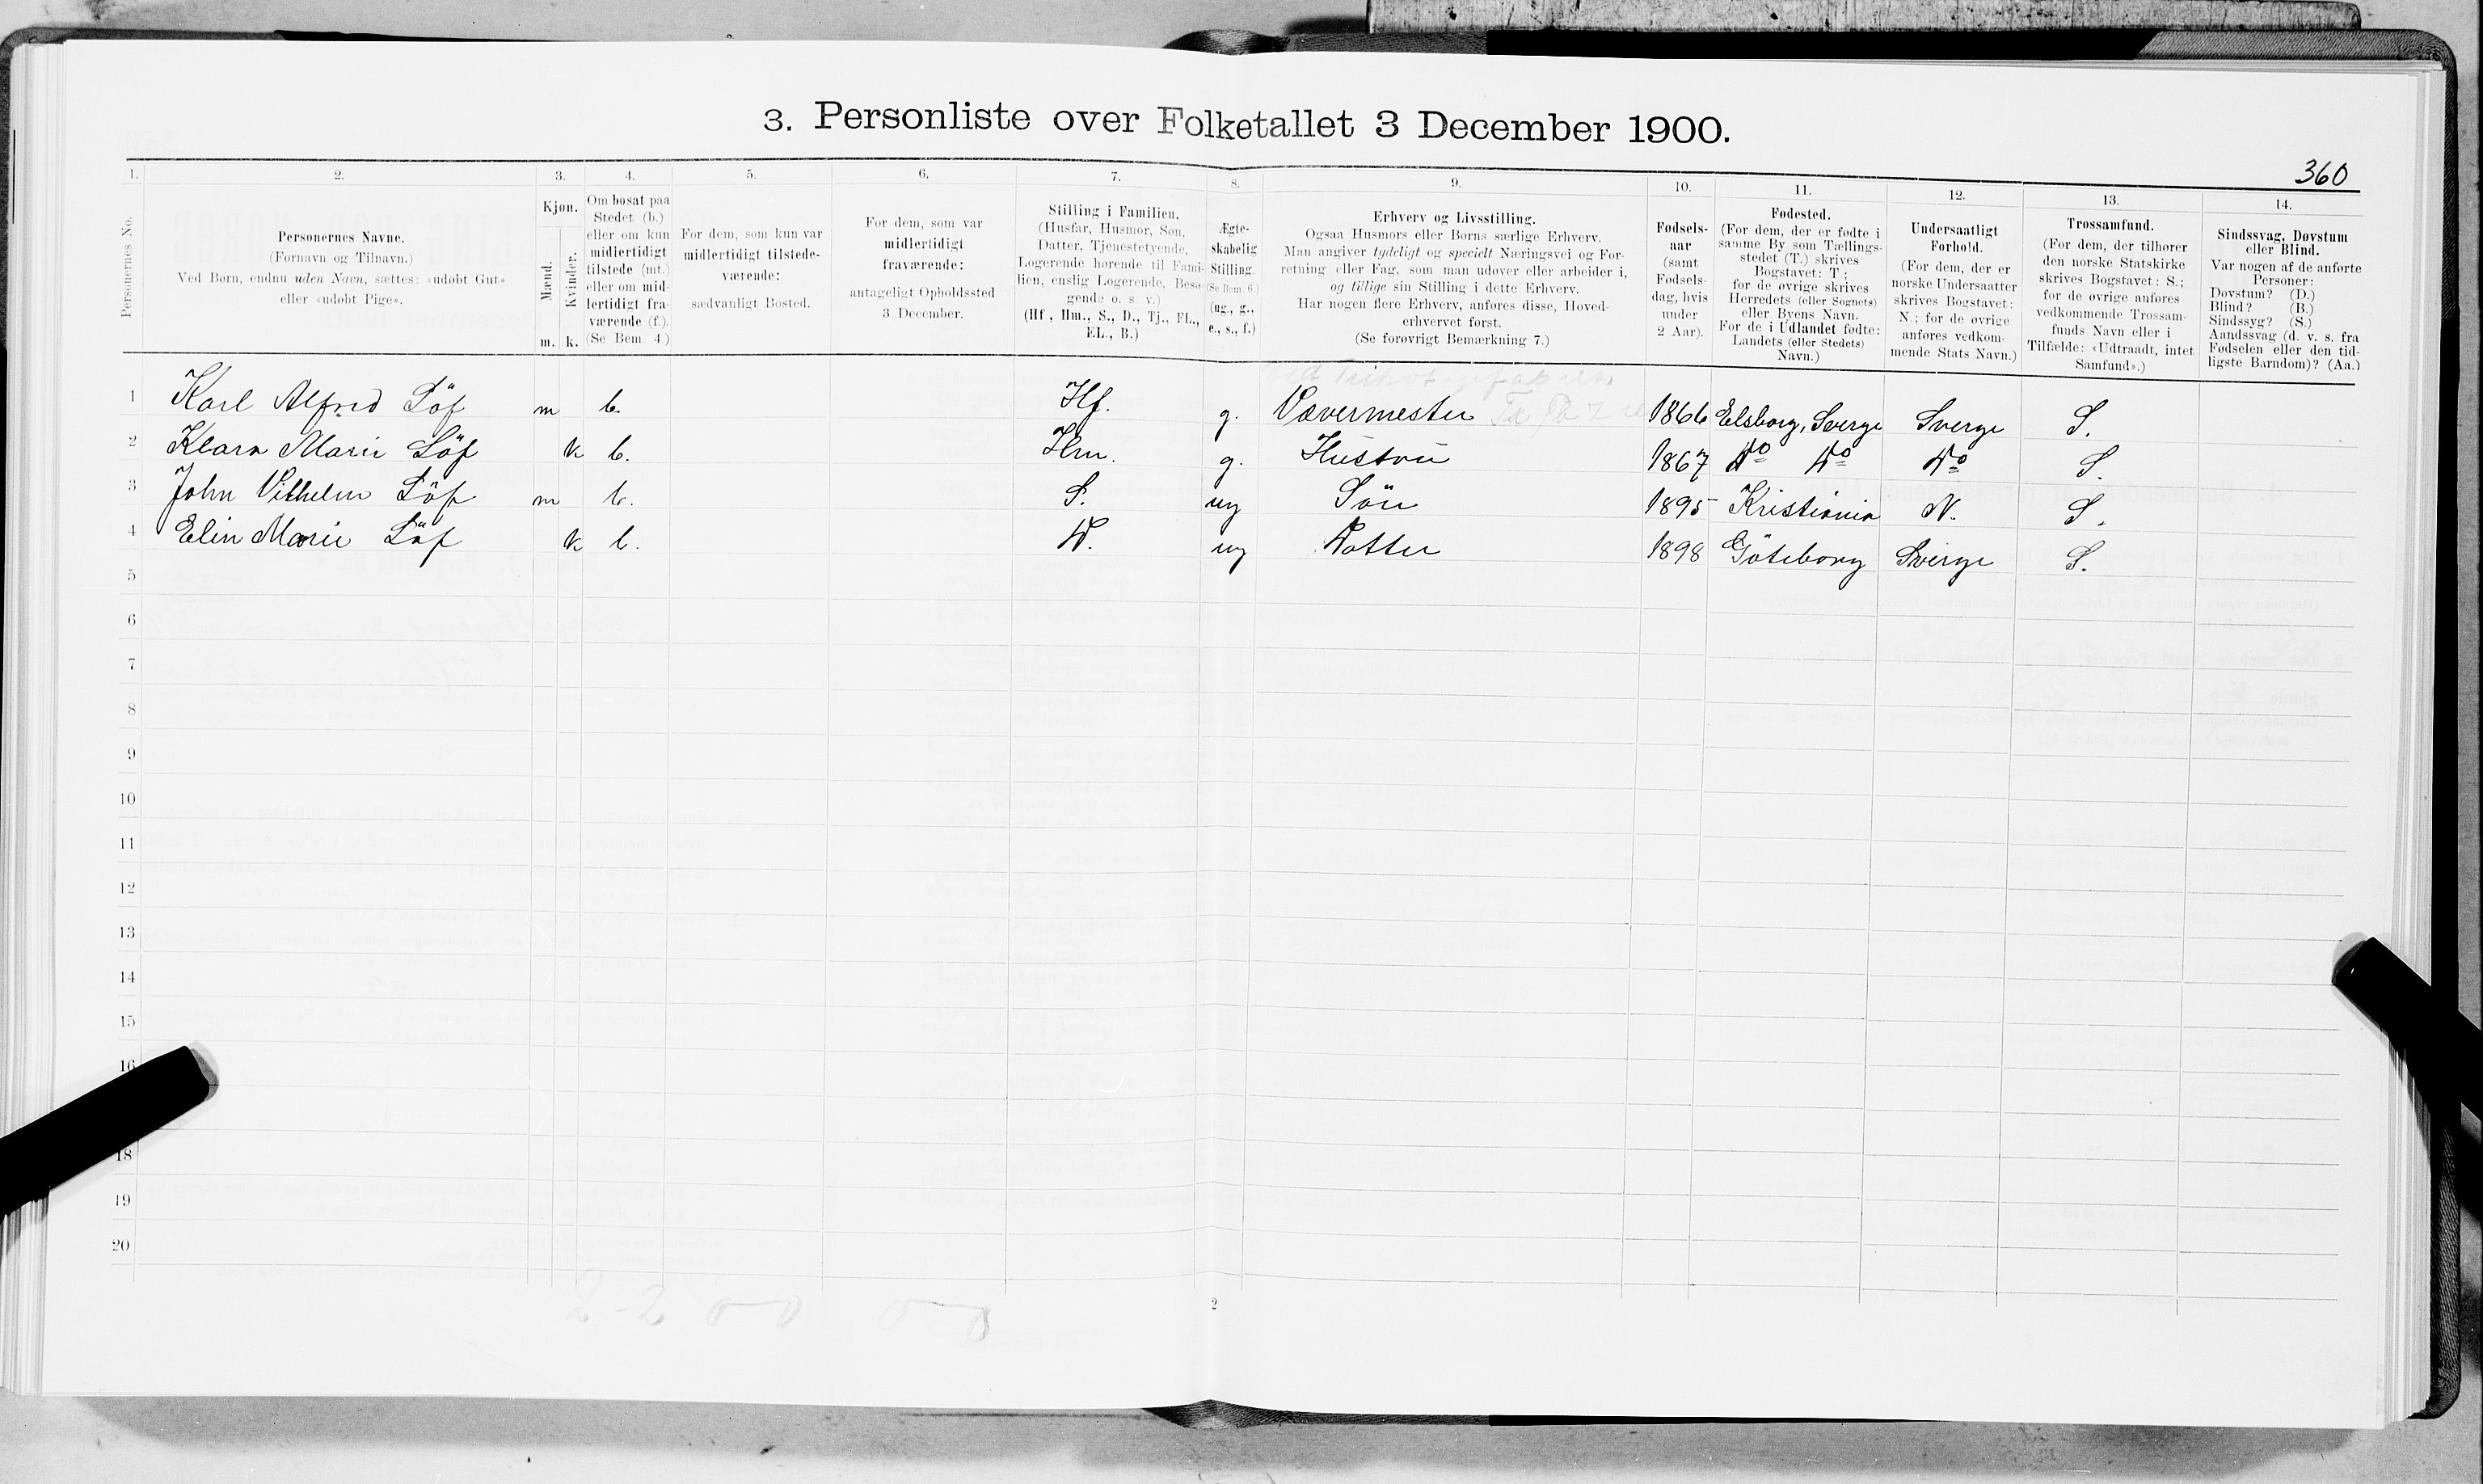 3. Personliste over Folketallet 3 December 1900.
360
1. 2. 3. 4. 5. 6. 7. 8. 9. 10. 11. 12. 13. 14.
Personernes No.
Personernes Navne.
(Fornavn og Tilnavn.)
Ved Børn, endnu uden Navn, sættes: «udøbt Gut»
eller «udøbt Pige».
Kjøn.
Mænd.
Kvinder.
m. k.
Om bosat paa
Stedet (b.)
eller om kun
midlertidigt
tilstede (mt.)
eller om mid-
lertidigt fra-
værende (f.).
(Se Bem. 4.)
For dem, som kun var
midlertidigt tilstede-
værende:
sædvanligt Bosted.
For dem, som var
midlertidigt
fraværende:
antageligt Opholdssted
3 December.
Stilling i Familien.
(Husfar, Husmor, Søn,
Datter, Tjenestetyende,
Logerende hørende til Fami-
lien, enslig Logerende, Besø-
gende o. s. v.)
(Hf., Hm., S., D., Tj., FL.,
EL., B.)
Ægte-
skabelig
Stilling.
(Se Bem. 6.)
(ug., g.,
e., s., f.)
Erhverv og Livsstilling.
Ogsaa Husmors eller Børns særlige Erhverv.
Man angiver tydeligt og specielt Næringsvei og For-
retning eller Fag, som man udøver eller arbeider i,
og tillige sin Stilling i dette Erhverv.
Har nogen flere Erhverv, anføres disse, Hoved-
erhvervet først.
(Se forøvrigt Bemærkning 7.)
Fødsels-
aar
(samt
Fødsels-
dag, hvis
under
2 Aar).
Fødested.
(For dem, der er fødte i
samme By som Tællings-
stedet (T.) skrives
Bogstavet: T;
for de øvrige skrives
Herredets (eller Sognets)
eller Byens Navn.
For de i Udlandet fødte:
Landets (eller Stedets)
Navn.)
Undersaatligt
Forhold.
(For dem, der er
norske Undersaatter
skrives Bogstavet:
N.; for de øvrige
anføres vedkom-
mende Stats Navn.)
Trossamfund.
(For dem, der tilhører
den norske Statskirke
skrives Bogstavet: S.;
for de øvrige anføres
vedkommende Trossam-
funds Navn eller i
Tilfælde: «Udtraadt, intet
Samfund».)
Sindssvag, Døvstum
eller Blind.
Var nogen af de anførte
Personer:
Døvstum? (D.)
Blind? (B.)
Sindssyg? (S.)
Aandssvag (d. v. s. fra
Fødselen eller den tid-
ligste Barndom)? (Aa.)
1 Karl Alfred Löf m b. Hf. g. Vævermester 1866 Elsborg, Sverge Sverge S.
2 Klara Marie Löf k b. Hm. g. Hustru 1867 Do Do Do S.
3 John Vilhelm Löf m b. S. ug Sön 1895 Kristiania N. S.
4 Elin Marie Löf k b. D. ug Datter 1898 Göteborg Sverge S.
5
6
7
8
9
10
11
12
13
14
15
16
18
19
20
2